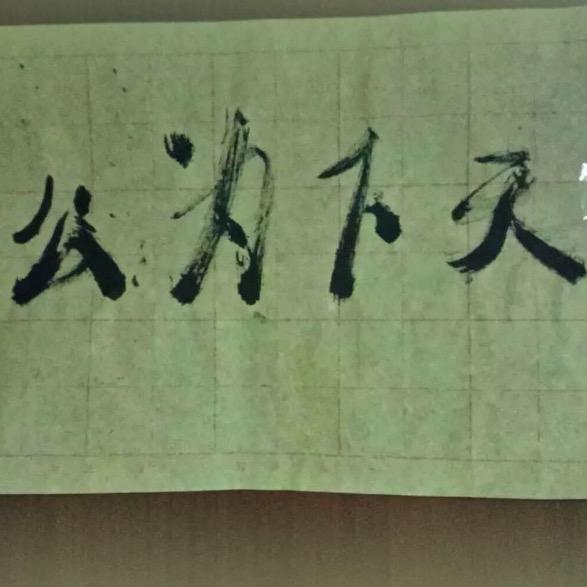 天下为公